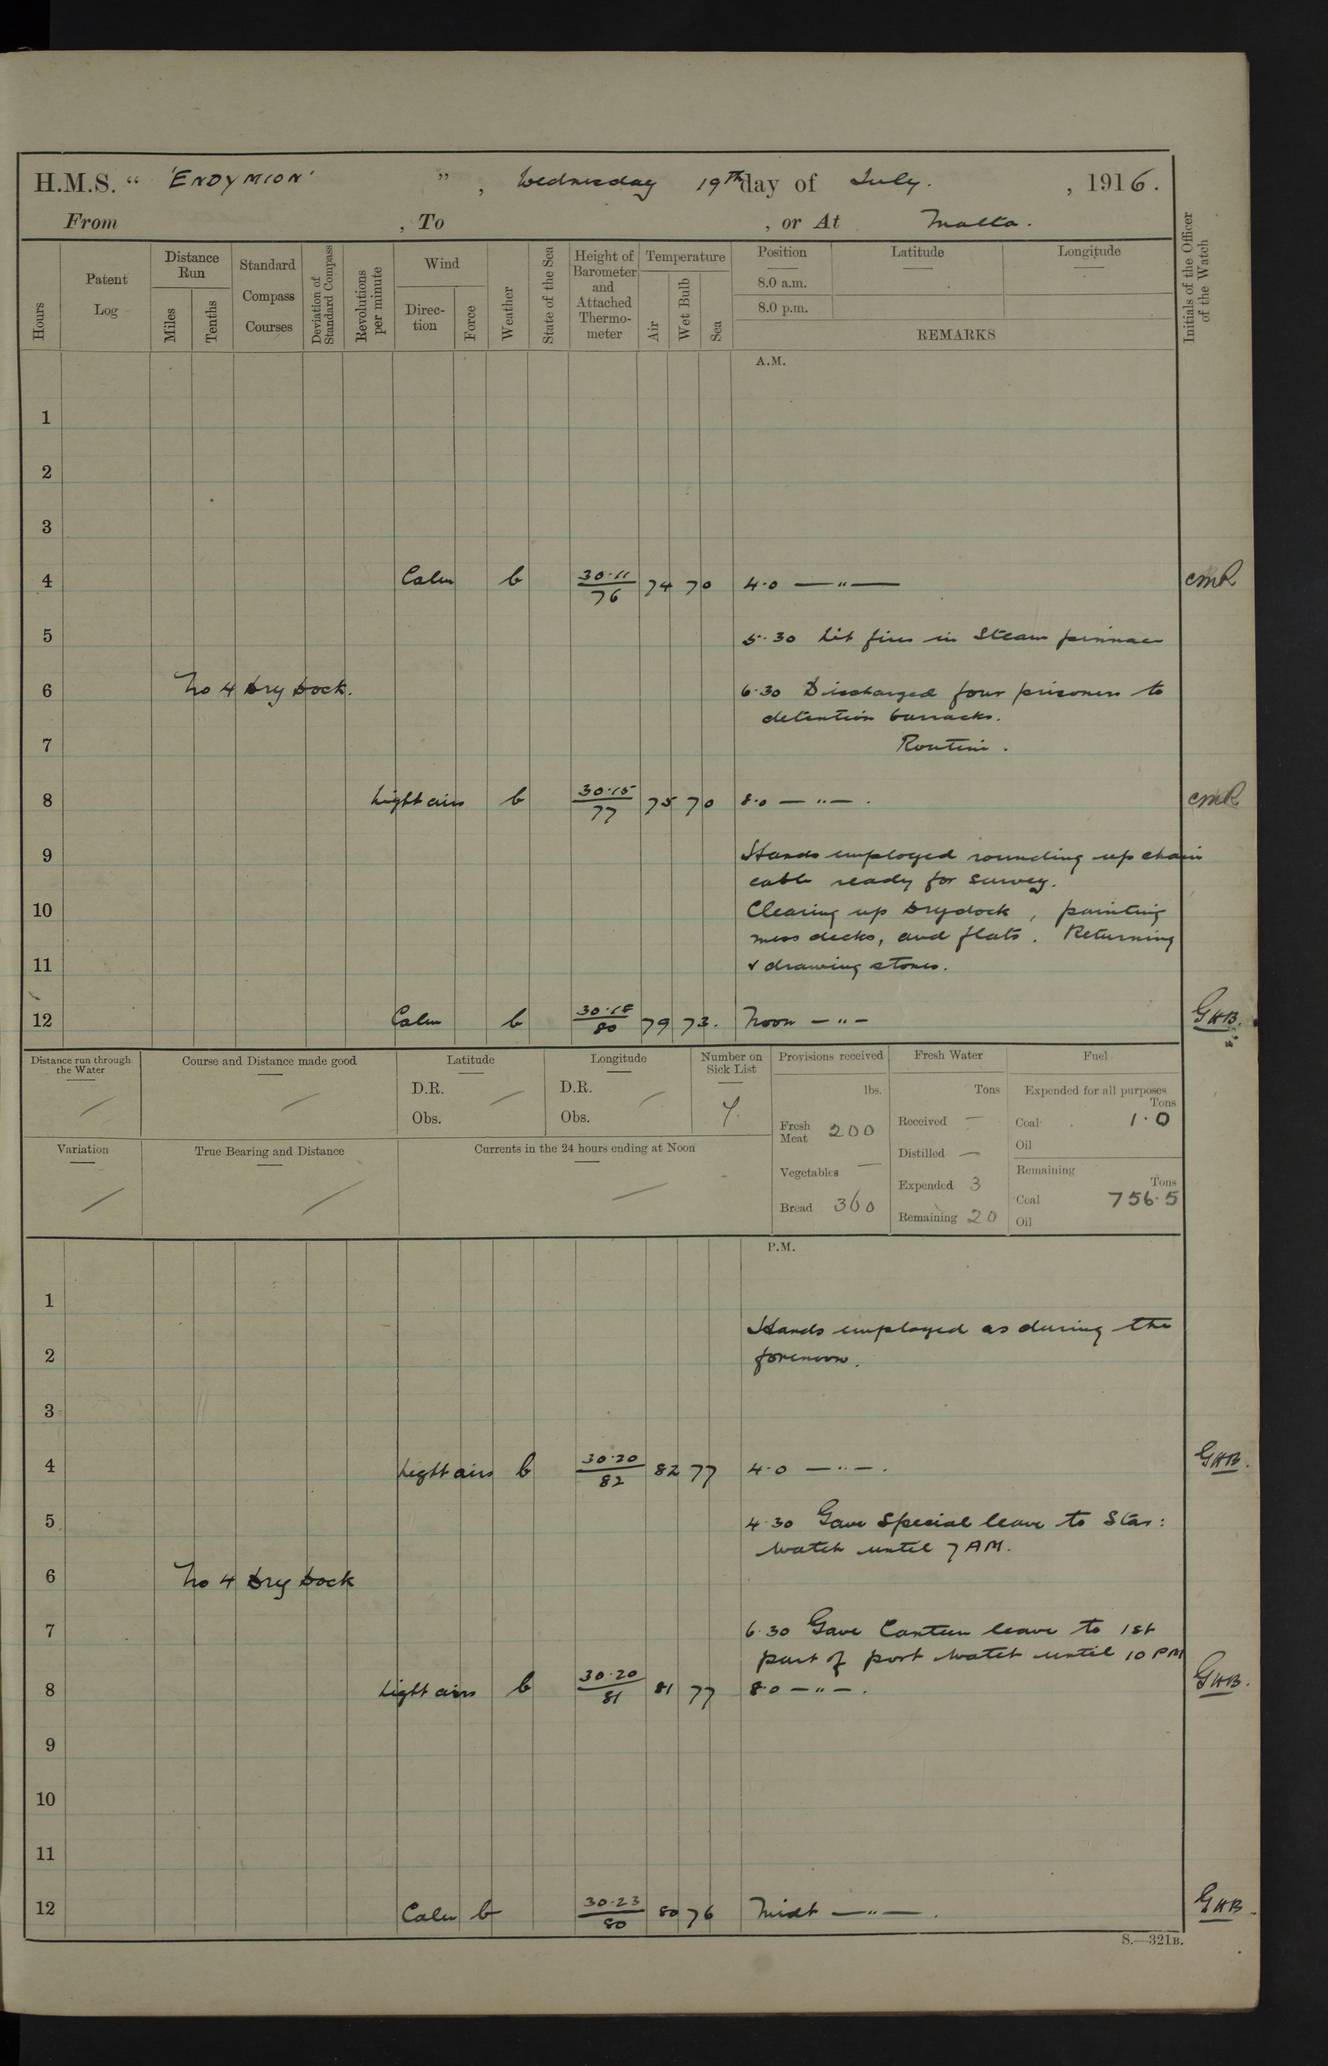 H.M.S. “ 'ENDYMION' ” , Wednesday 19th day of July. , 1916.
From , To , or At Malta.
Hours
Patent Log
Distance Run
Miles
Tenths
Standard Compass Courses
Deviation of Standard Compass
Revolutions per minute
Wind
Direction
Force
Weather
State of the Sea
Height of Barometer and Attached Thermometer
Temperature
Air
Wet Bulb
Sea
Position
8.0 a.m.
8.0 p.m.
Latitude
Longitude
REMARKS
Initials of the Officer of the Watch
A.M.
1
2
3
4 Calm b 30.11/76 74 70 4.0 — " — CMR
5 5.30 Lit fires in Steam pinnace
6 No 4 Dry Dock. 6.30 Discharged four prisoners to
detention barracks.
7 Routine.
8 Light airs b 30.15/77 75 70 8.0 — " — . CMR
9 Hands employed rounding up chain
cable ready for survey.
10 Clearing up Drydock, painting
mess decks, and flats. Returning
11 & drawing stores.
12 Calm b 30.18/80 79 73. Noon — " — GHB.
Distance run through the Water
Course and Distance made good
Latitude
D.R.
Obs.
Longitude
D.R.
Obs.
Number on Sick List
Provisions received
lbs.
Fresh Meat 200
Vegetables —
Bread 360
Fresh Water
Tons
Received —
Distilled —
Expended 3
Remaining 20
Fuel
Expended for all purposes
Tons
Coal 1.0
Oil
Remaining
Tons
Coal 756.5
Oil
Variation
True Bearing and Distance
Currents in the 24 hours ending at Noon
P.M.
1
Hands employed as during the
2 forenoon.
3
4 Light airs b 30.20/82 82 77 4.0 — " — . GHB.
5 4.30 Gave Special leave to Star:
Watch until 7 AM.
6 No 4 Dry Dock
7 6.30 Gave Canteen leave to 1st
part of port Watch until 10 PM
8 Light airs b 30.20/81 81 77 8.0 — " — . GHB.
9
10
11
12 Calm b 30.23/80 80 76 Midt — " — . GHB.
S.—321B.